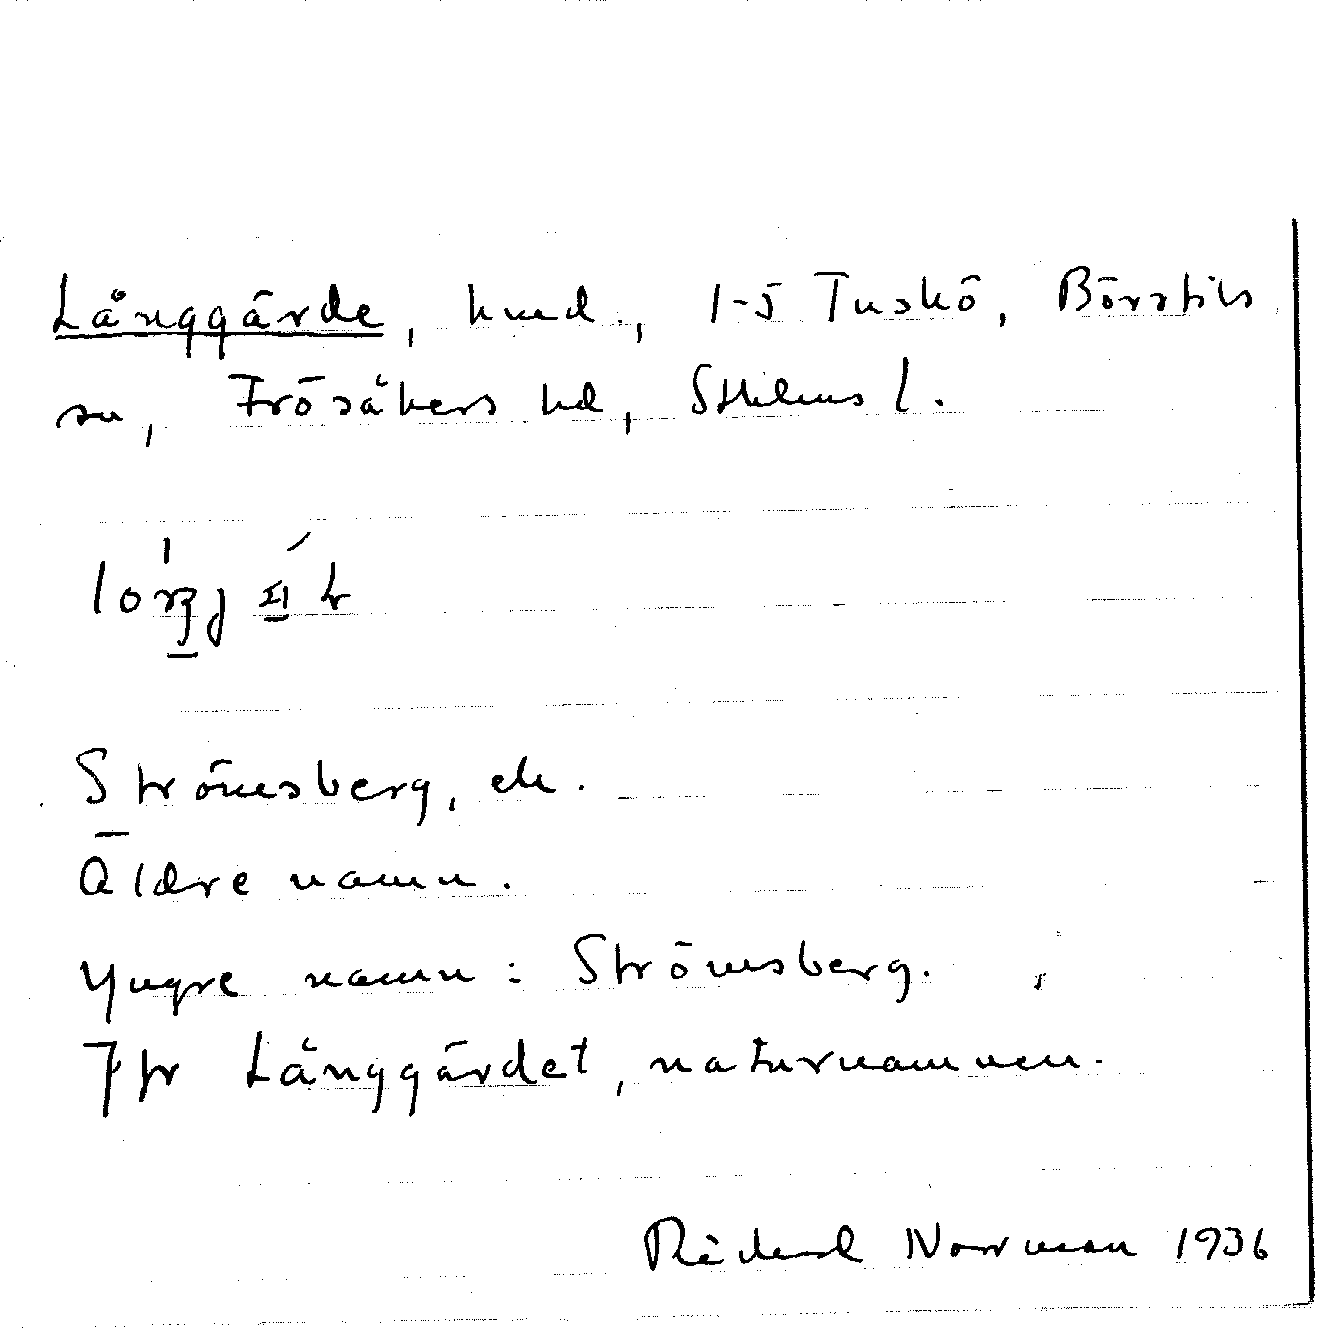 Långgärde, hmd., 1-5 Tuskö, Börstils
sn, Frösåkers hd, Sthlms l.
Strömsberg, ch.
Äldre namn.
Yngre namn: Strömsberg.
Jfr Långgärdet, naturnamnen.
Rickard Norrman 1936